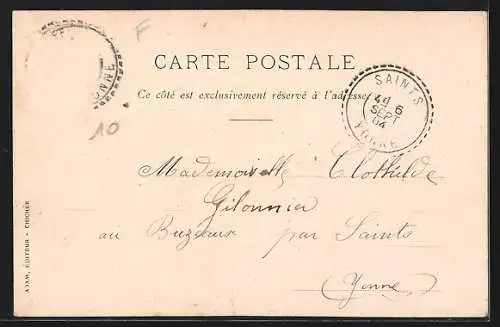 F
CARTE POSTALE
Ce côté est exclusivement réservé à l'adresse
SAINTS
6
SEPT
04
YONNE
ONNE
10
Mademoiselle Clothilde
Gilonnier
au Buzeaux par Saints
(Yonne)
AJAM, ÉDITEUR - CHICHÉE